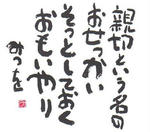 親切という名の
おせっかい
そっとしておく
おもいやり
みつを